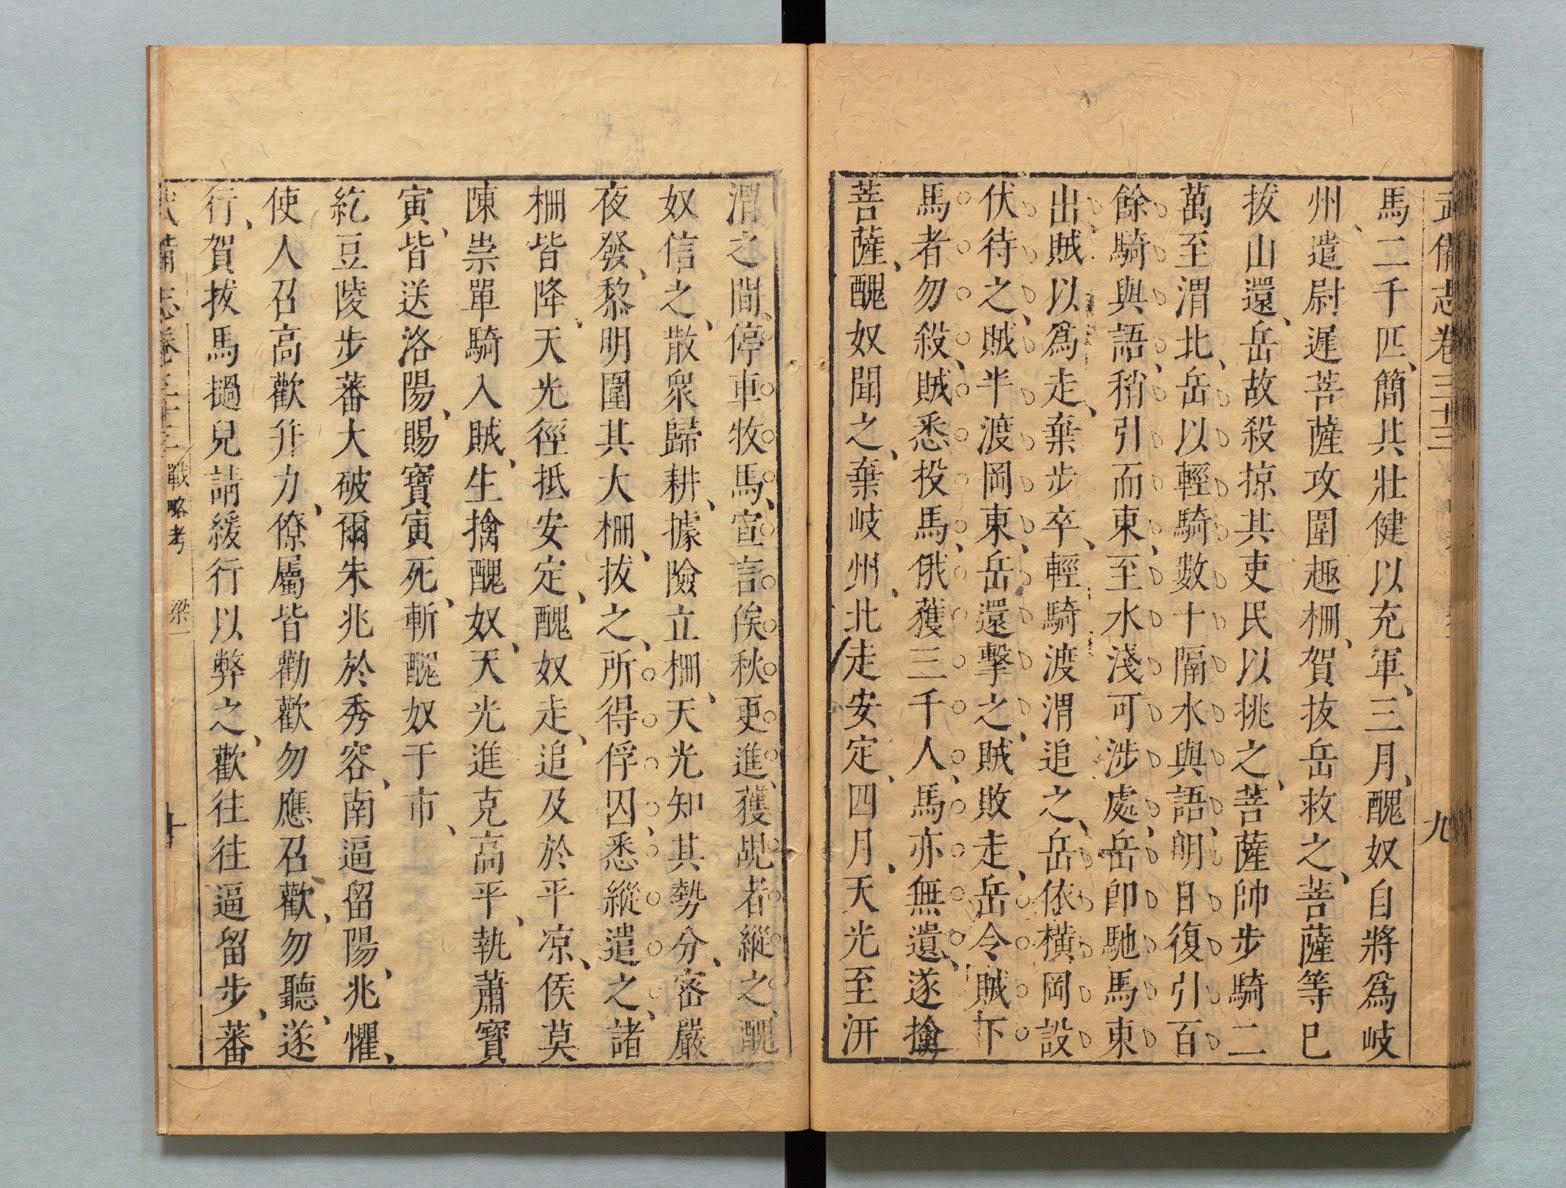 武備志卷三十三
九
馬二千匹、簡其壯健以充軍、三月、醜奴自將爲岐
州、遣尉遲菩薩攻圍趣柵、賀拔岳救之、菩薩等已
拔山還、岳故殺掠其吏民以挑之、菩薩帥步騎二
萬至渭北、岳以輕騎數十隔水與語、明日復引百
餘騎與語、稍引而東、至水淺可涉處、岳卽馳馬東
出、賊以爲走、棄步卒、輕騎渡渭追之、岳依橫岡設
伏待之、賊半渡岡東、岳還擊之、賊敗走、岳令賊下
馬者勿殺、賊悉投馬、俄獲三千人、馬亦無遺、遂擒
菩薩、醜奴聞之、棄岐州、北走安定、四月、天光至汧
渭之間、停車牧馬、宣言俟秋更進、獲覘者縱之、醜
奴信之、散衆歸耕、據險立柵、天光知其勢分、密嚴
夜發、黎明圍其大柵、拔之、所得俘囚悉縱遣之、諸
柵皆降、天光徑抵安定、醜奴走、追及於平凉、侯莫
陳崇單騎入賊、生擒醜奴、天光進克高平、執蕭寶
寅、皆送洛陽、賜寶寅死、斬醜奴于市、
紇豆陵步蕃大破爾朱兆於秀容、南逼留陽、兆懼、
使人召高歡幷力、僚屬皆勸歡勿應召、歡勿聽、遂
行、賀拔馬撾兒請緩行以弊之、歡往往逼留步、蕃
武備志卷三十三 戰略考 梁一
十